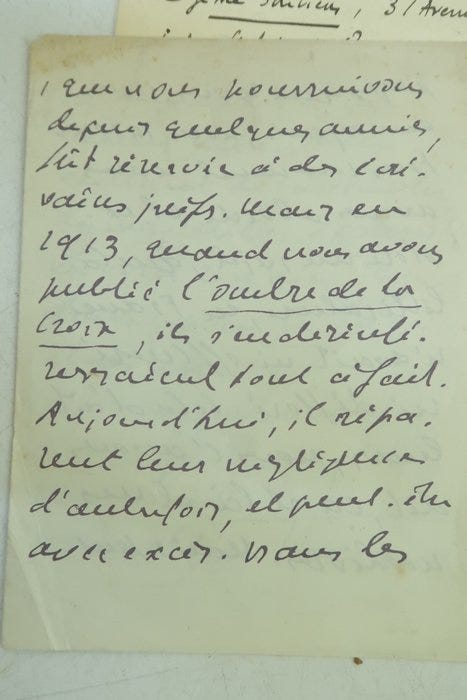 31 Avenu
que nous poursuivons
depuis quelques années,
fût réservée à des écri-
vains juifs. Mais en
1913, quand nous avons
publié l'ombre de la
Croix, ils s'en désinté-
ressaient tout à fait.
Aujourd'hui, ils répa-
rent leur négligence
d'autrefois, et peut-être
avec excès. Dans les